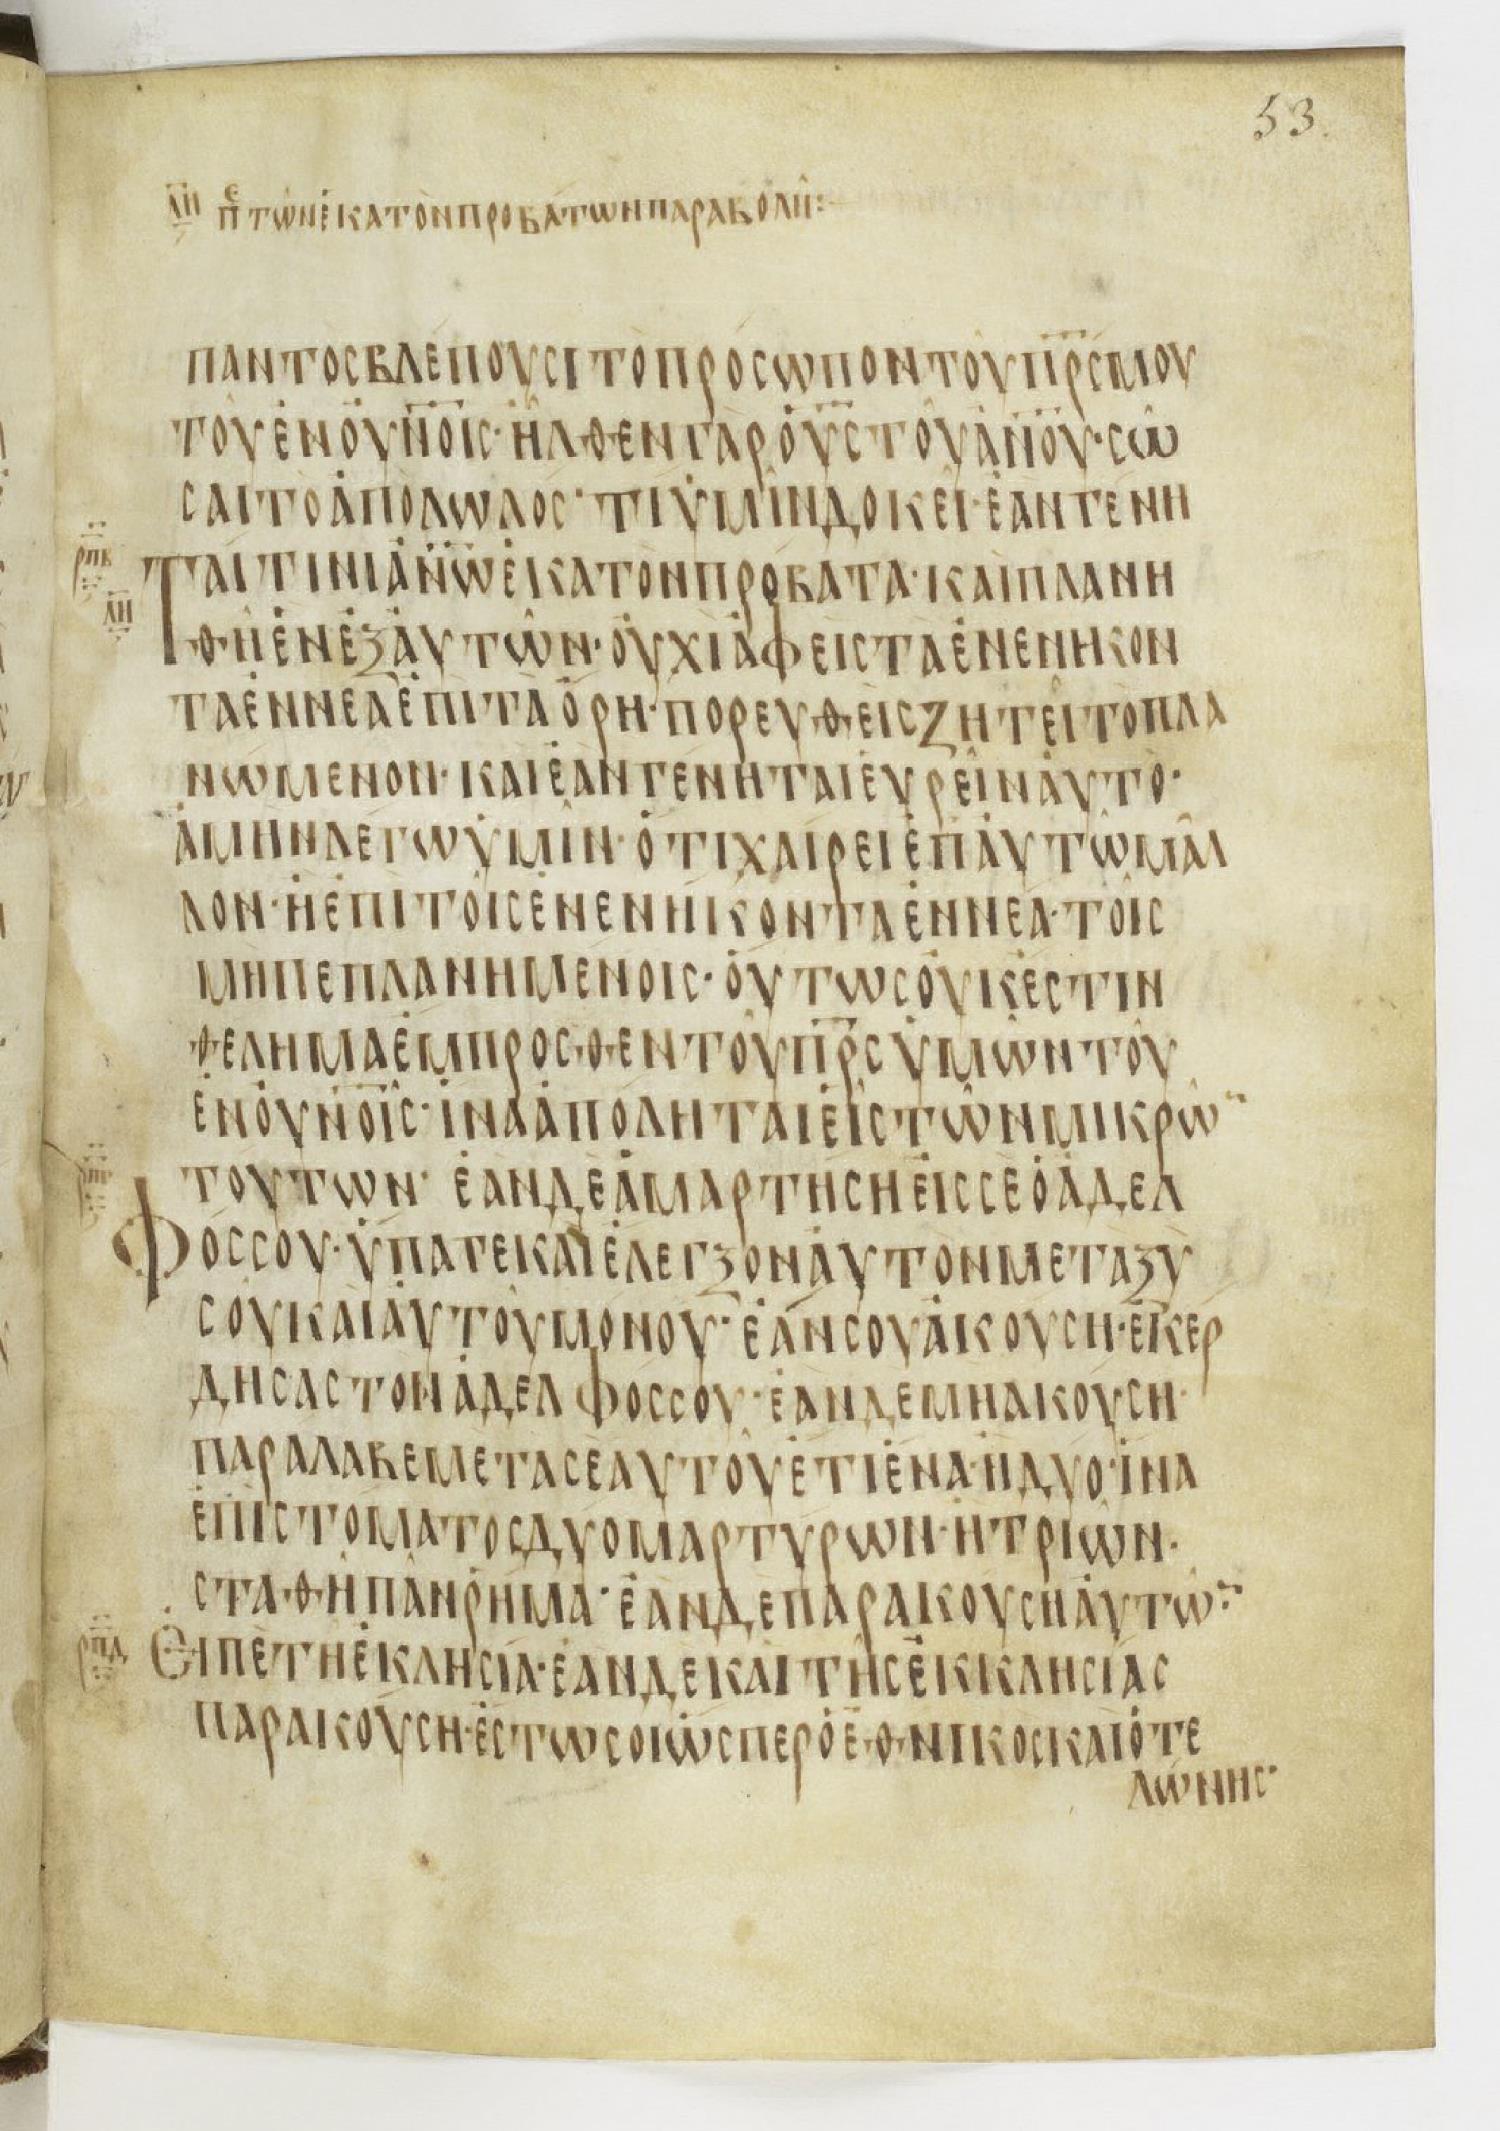 53.
ΛΗ ΠΕ ΤῶΝ ἑΚΑΤὸΝ ΠΡΟΒΆΤΩΝ ΠΑΡΑΒΟΛΉ:
ΠΑΝΤΟΣΒΛΕΠΟΥΣΙΤΟΠΡΟΣΩΠΟΝΤΟΥΠΡΣΜΟΥ
ΤΟΥΕΝΟΥΝΟΙΣ·ΗΛΘΕΝΓΑΡΟΥΣΤΟΥΑΝΟΥ·ΣΩ
ΣΑΙΤΟΑΠΟΛΩΛΟΣ·ΤΙΥΜΙΝΔΟΚΕΙ·ΕΑΝΓΕΝΗ
ΡΠΒ
ΛΗ
ΤΑΙΤΙΝΙΑΝΩΕΚΑΤΟΝΠΡΟΒΑΤΑ·ΚΑΙΠΛΑΝΗ
ΘΗΕΝΕΞΑΥΤΩΝ·ΟΥΧΙΑΦΕΙΣΤΑΕΝΕΝΗΚΟΝ
ΤΑΕΝΝΕΑΕΠΙΤΑΟΡΗ·ΠΟΡΕΥΘΕΙΣΖΗΤΕΙΤΟΠΛΑ
ΝΩΜΕΝΟΝ·ΚΑΙΕΑΝΓΕΝΗΤΑΙΕΥΡΕΙΝΑΥΤΟ·
ΑΜΗΝΛΕΓΩΥΜΙΝ·ΟΤΙΧΑΙΡΕΙΕΠΑΥΤΩΜΑΛ
ΛΟΝ·ΗΕΠΙΤΟΙΣΕΝΕΝΗΚΟΝΤΑΕΝΝΕΑ·ΤΟΙΣ
ΜΗΠΕΠΛΑΝΗΜΕΝΟΙΣ·ΟΥΤΩΣΟΥΚΕΣΤΙΝ
ΘΕΛΗΜΑΕΜΠΡΟΣΘΕΝΤΟΥΠΡΣΥΜΩΝΤΟΥ
ΕΝΟΥΝΟΙΣ·ΙΝΑΑΠΟΛΗΤΑΙΕΙΣΤΩΝΜΙΚΡΩ
ΤΟΥΤΩΝ·ΕΑΝΔΕΑΜΑΡΤΗΣΗΕΙΣΣΕΟΑΔΕΛ
ΦΟΣΣΟΥ·ΥΠΑΓΕΚΑΙΕΛΕΓΞΟΝΑΥΤΟΝΜΕΤΑΞΥ
ΣΟΥΚΑΙΑΥΤΟΥΜΟΝΟΥ·ΕΑΝΣΟΥΑΚΟΥΣΗ·ΕΚΕΡ
ΔΗΣΑΣΤΟΝΑΔΕΛΦΟΣΣΟΥ·ΕΑΝΔΕΜΗΑΚΟΥΣΗ·
ΠΑΡΑΛΑΒΕΜΕΤΑΣΕΑΥΤΟΥΕΤΙΕΝΑ·ΗΔΥΟ·ΙΝΑ
ΕΠΙΣΤΟΜΑΤΟΣΔΥΟΜΑΡΤΥΡΩΝ·ΗΤΡΙΩΝ·
ΣΤΑΘΗΠΑΝΡΗΜΑ·ΕΑΝΔΕΠΑΡΑΚΟΥΣΗΑΥΤΩ
ΡΠΔ
ΕΙΠΕΤΗΕΚΛΗΣΙΑ·ΕΑΝΔΕΚΑΙΤΗΣΕΚΚΛΗΣΙΑΣ
ΠΑΡΑΚΟΥΣΗ·ΕΣΤΩΣΟΙΩΣΠΕΡΟΕΘΝΙΚΟΣΚΑΙΟΤΕ
ΛΩΝΗΣ·